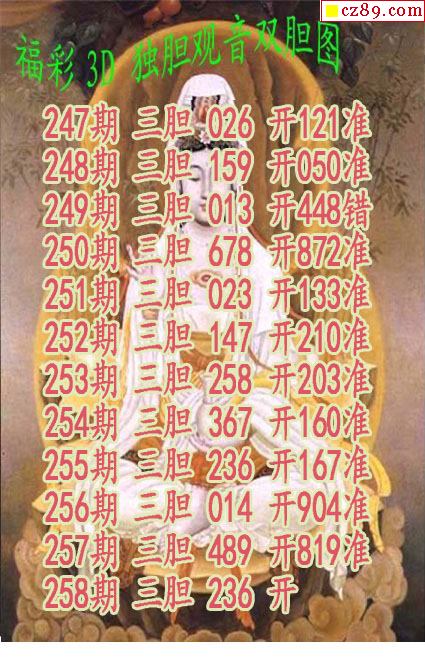 cz89.com
福彩 3D 独胆观音双胆图
247期 三胆 026 开121准
248期 三胆 159 开050准
249期 三胆 013 开448错
250期 三胆 678 开872准
251期 三胆 023 开133准
252期 三胆 147 开210准
253期 三胆 258 开203准
254期 三胆 367 开160准
255期 三胆 236 开167准
256期 三胆 014 开904准
257期 三胆 489 开819准
258期 三胆 236 开